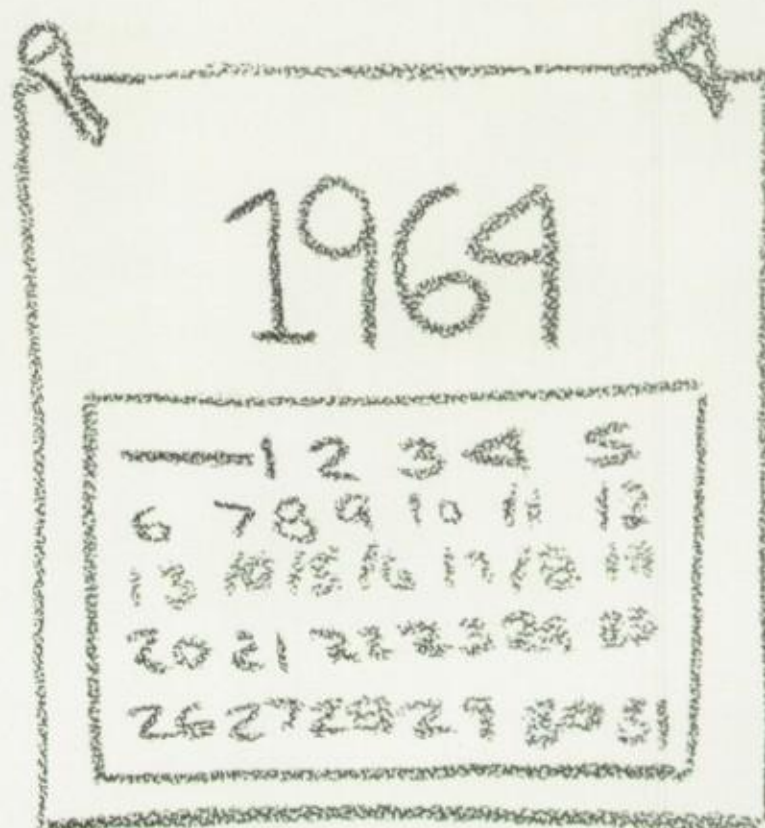 1964
1 2 3 4 5
6 7 8 9 10 11 12
13 15 16 17 18
20 21 22 23 24
26 27 28 29 30 31